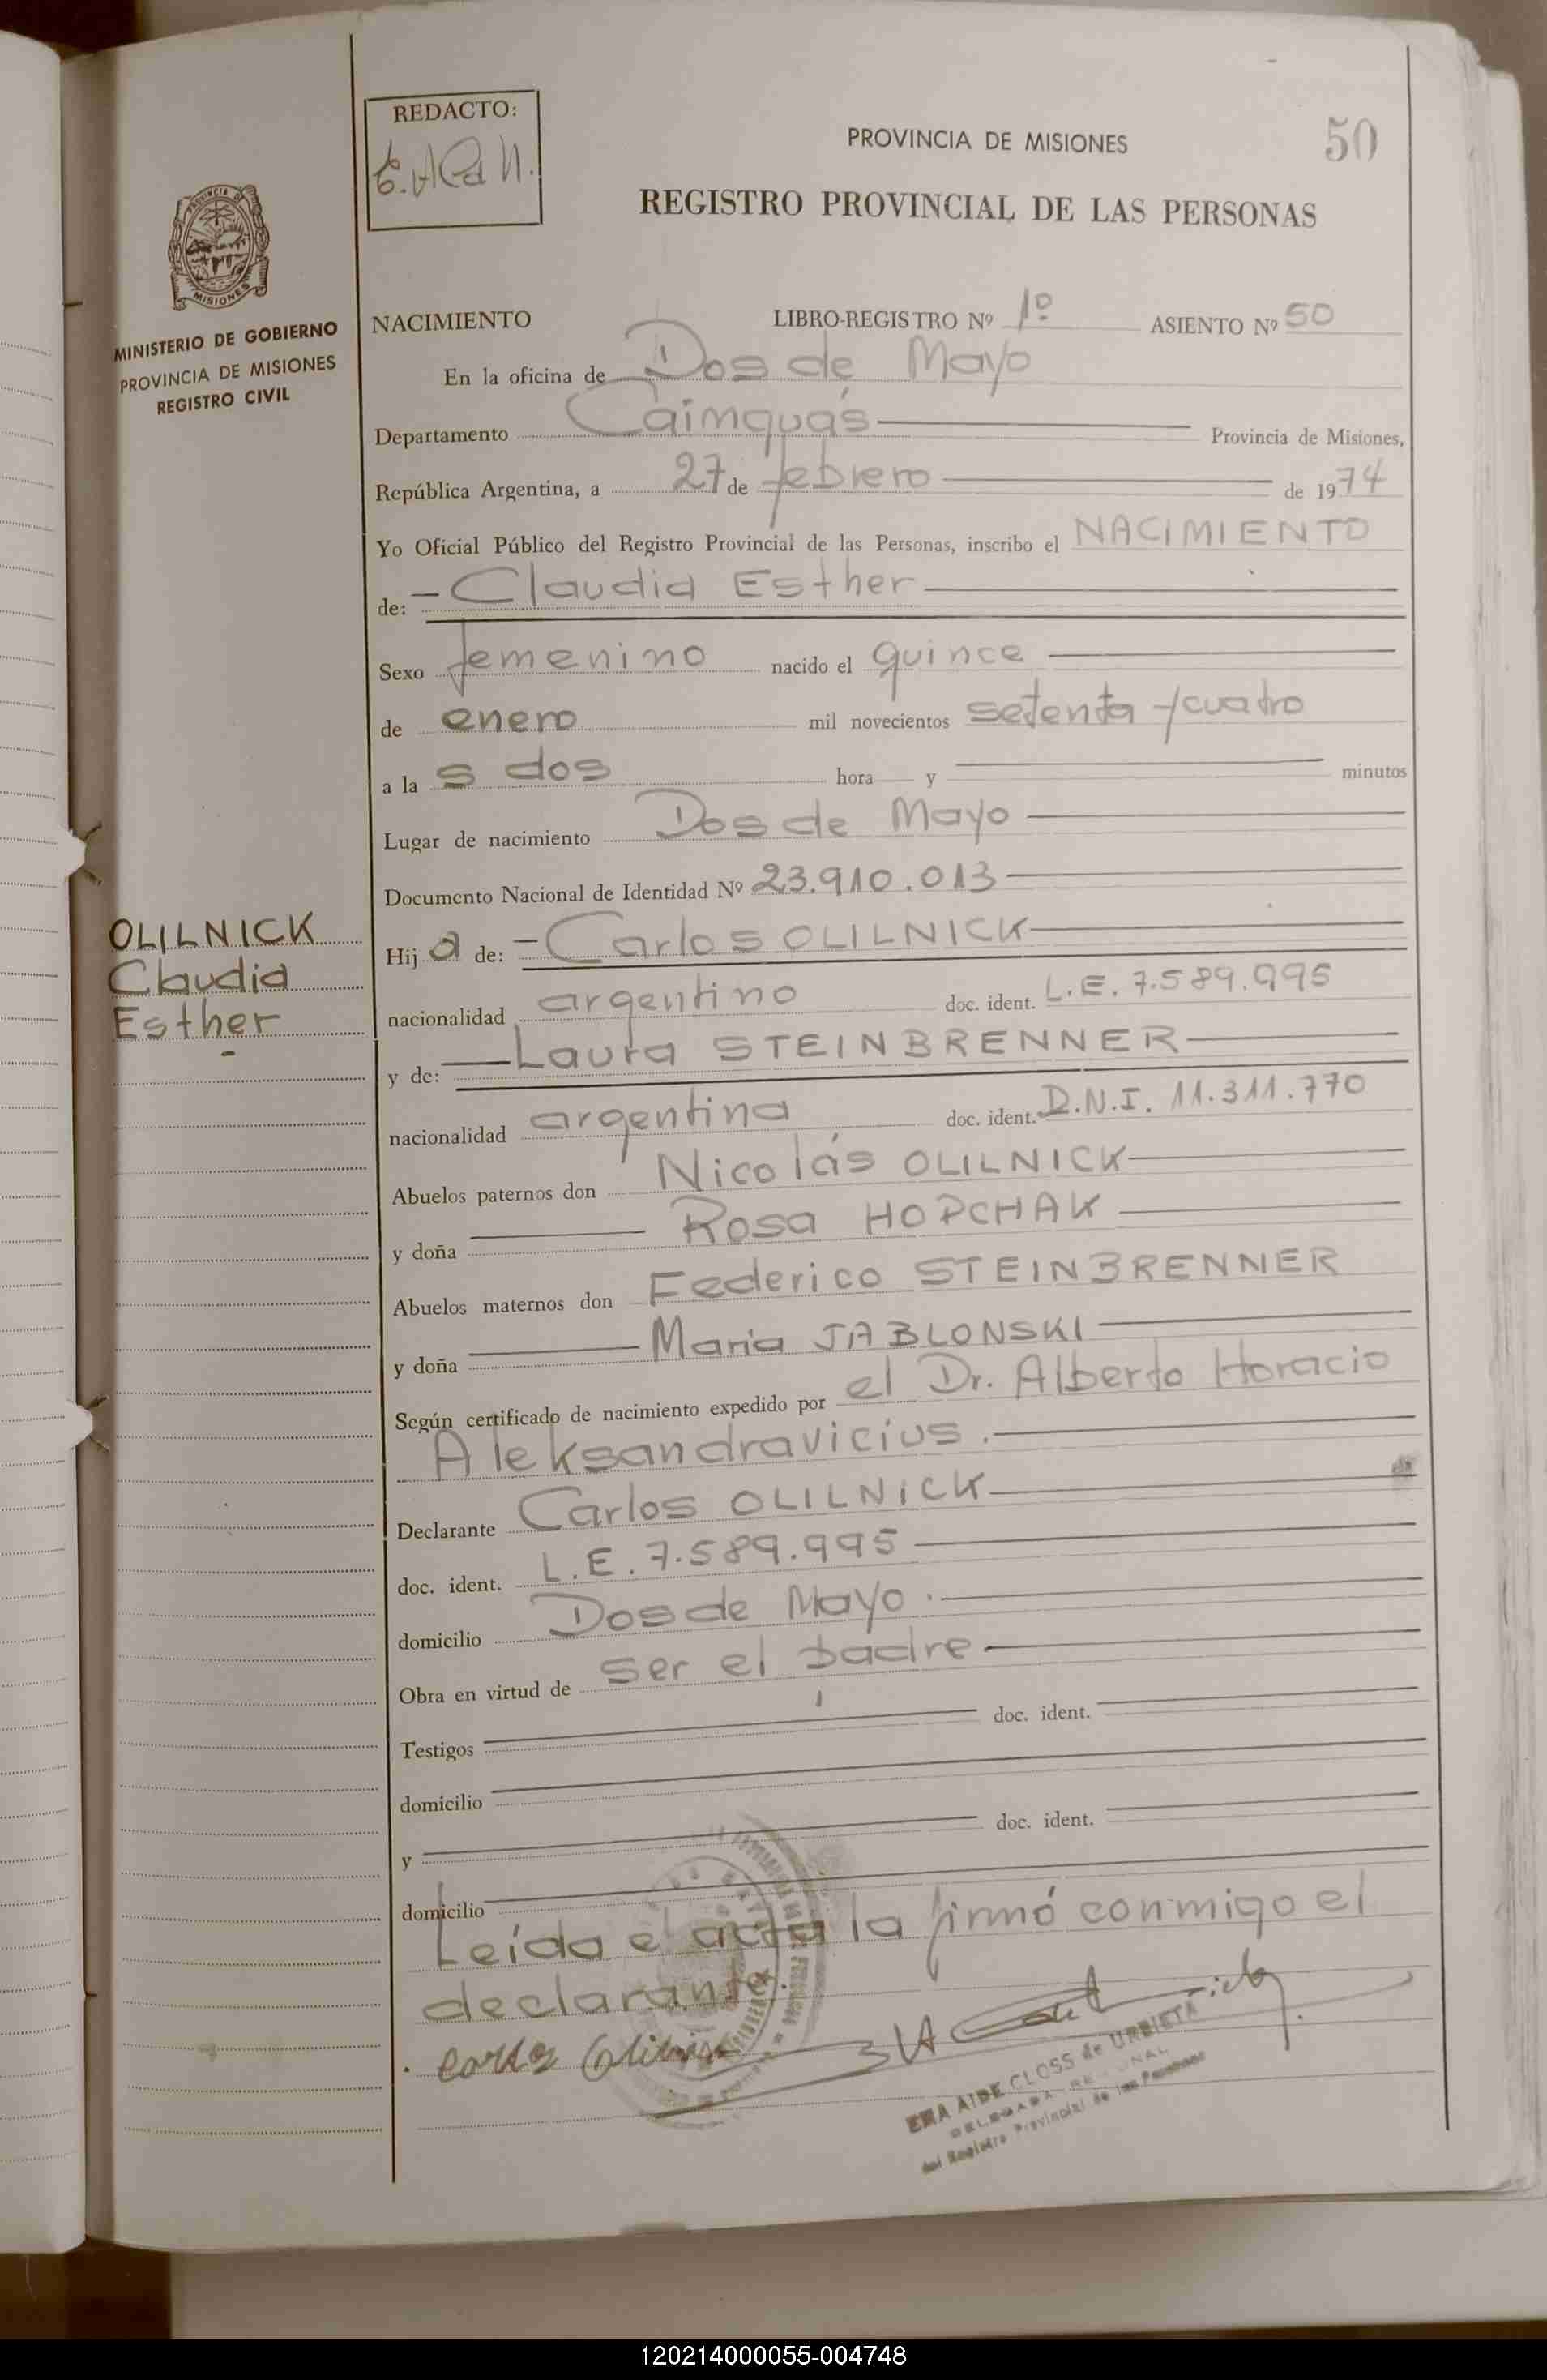 REDACTO:
PROVINCIA DE MISIONES
50
REGISTRO PROVINCIAL DE LAS PERSONAS
PROVINCIA DE
MISIONES
MINISTERIO DE GOBIERNO
PROVINCIA DE MISIONES
REGISTRO CIVIL
NACIMIENTO LIBRO-REGISTRO Nº 1º ASIENTO Nº 50
En la oficina de Dos de Mayo
Departamento Cainguás Provincia de Misiones,
República Argentina, a 27 de febrero de 1974
Yo Oficial Público del Registro Provincial de las Personas, inscribo el NACIMIENTO
de: Claudia Esther
Sexo femenino nacido el quince
de enero mil novecientos setenta y cuatro
a la s dos hora y minutos
Lugar de nacimiento Dos de Mayo
Documento Nacional de Identidad Nº 23.910.013
OLILNICK
Claudia
Esther
Hij a de: Carlos OLILNICK
nacionalidad argentino doc. ident. L.E. 7.589.995
y de: Laura STEINBRENNER
nacionalidad argentina doc. ident. D.N.I. 11.311.770
Abuelos paternos don Nicolás OLILNICK
y doña Rosa HOPCHAK
Abuelos maternos don Federico STEINBRENNER
y doña Maria JABLONSKI
Según certificado de nacimiento expedido por el Dr. Alberto Horacio
Aleksandravicius.
Declarante Carlos OLILNICK
doc. ident. L.E. 7.589.995
domicilio Dos de Mayo.
Obra en virtud de ser el padre
Testigos doc. ident.
domicilio
y doc. ident.
domicilio
Leída el acta la firmó conmigo el
declarante.
EMA AIDE CLOSS de URBIETA
DELEGADA REGIONAL
del Registro Provincial de las Personas
120214000055-004748